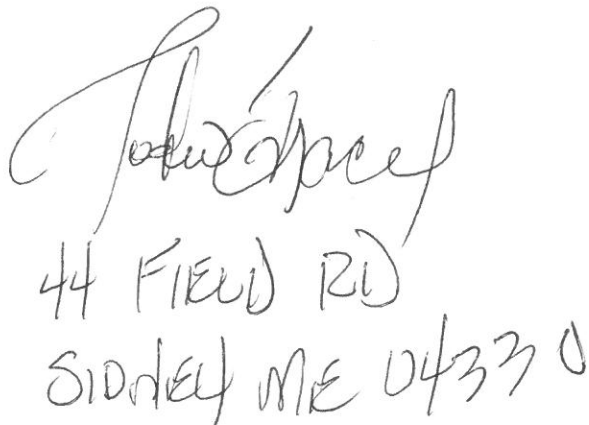 44 FIELD RD
SIDNEY ME 04330